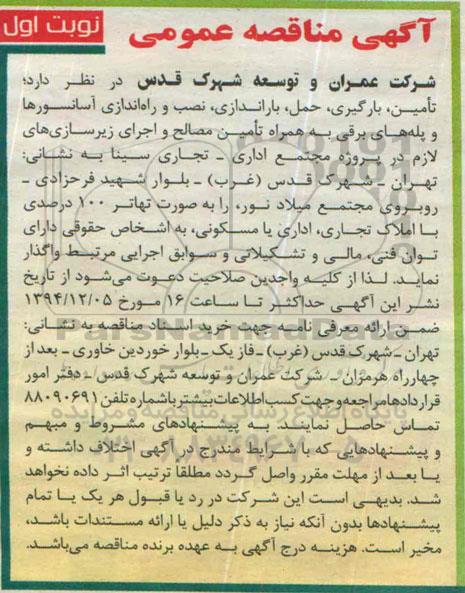 نوبت اول
آگهی مناقصه عمومی
شرکت عمران و توسعه شهرک قدس در نظر دارد؛
تأمین، بارگیری، حمل، باراندازی، نصب و راه‌اندازی آسانسورها
و پله‌های برقی به همراه تأمین مصالح و اجرای زیرسازی‌های
لازم در پروژه مجتمع اداری - تجاری سینا به نشانی:
تهران - شهرک قدس (غرب) - بلوار شهید فرحزادی -
روبروی مجتمع میلاد نور، را به صورت تهاتر ۱۰۰ درصدی
با املاک تجاری، اداری یا مسکونی، به اشخاص حقوقی دارای
توان فنی، مالی و تشکیلاتی و سوابق اجرایی مرتبط واگذار
نماید. لذا از کلیه واجدین صلاحیت دعوت می‌شود از تاریخ
نشر این آگهی حداکثر تا ساعت ۱۶ مورخ ۱۳۹۴/۱۲/۰۵
ضمن ارائه معرفی نامه جهت خرید اسناد مناقصه به نشانی:
تهران - شهرک قدس (غرب) - فاز یک - بلوار خوردین خاوری - بعد از
چهارراه هرمزان - شرکت عمران و توسعه شهرک قدس - دفتر امور
قراردادها مراجعه و جهت کسب اطلاعات بیشتر با شماره تلفن ۸۸۰۹۰۶۹۱
تماس حاصل نمایند. به پیشنهادهای مشروط و مبهم
و پیشنهادهایی که با شرایط مندرج در آگهی اختلاف داشته و
یا بعد از مهلت مقرر واصل گردد مطلقا ترتیب اثر داده نخواهد
شد. بدیهی است این شرکت در رد یا قبول هر یک یا تمام
پیشنهادها بدون آنکه نیاز به ذکر دلیل یا ارائه مستندات باشد،
مخیر است. هزینه درج آگهی به عهده برنده مناقصه می‌باشد.
ParsNamadData
پایگاه اطلاع رسانی مناقصه و مزایده